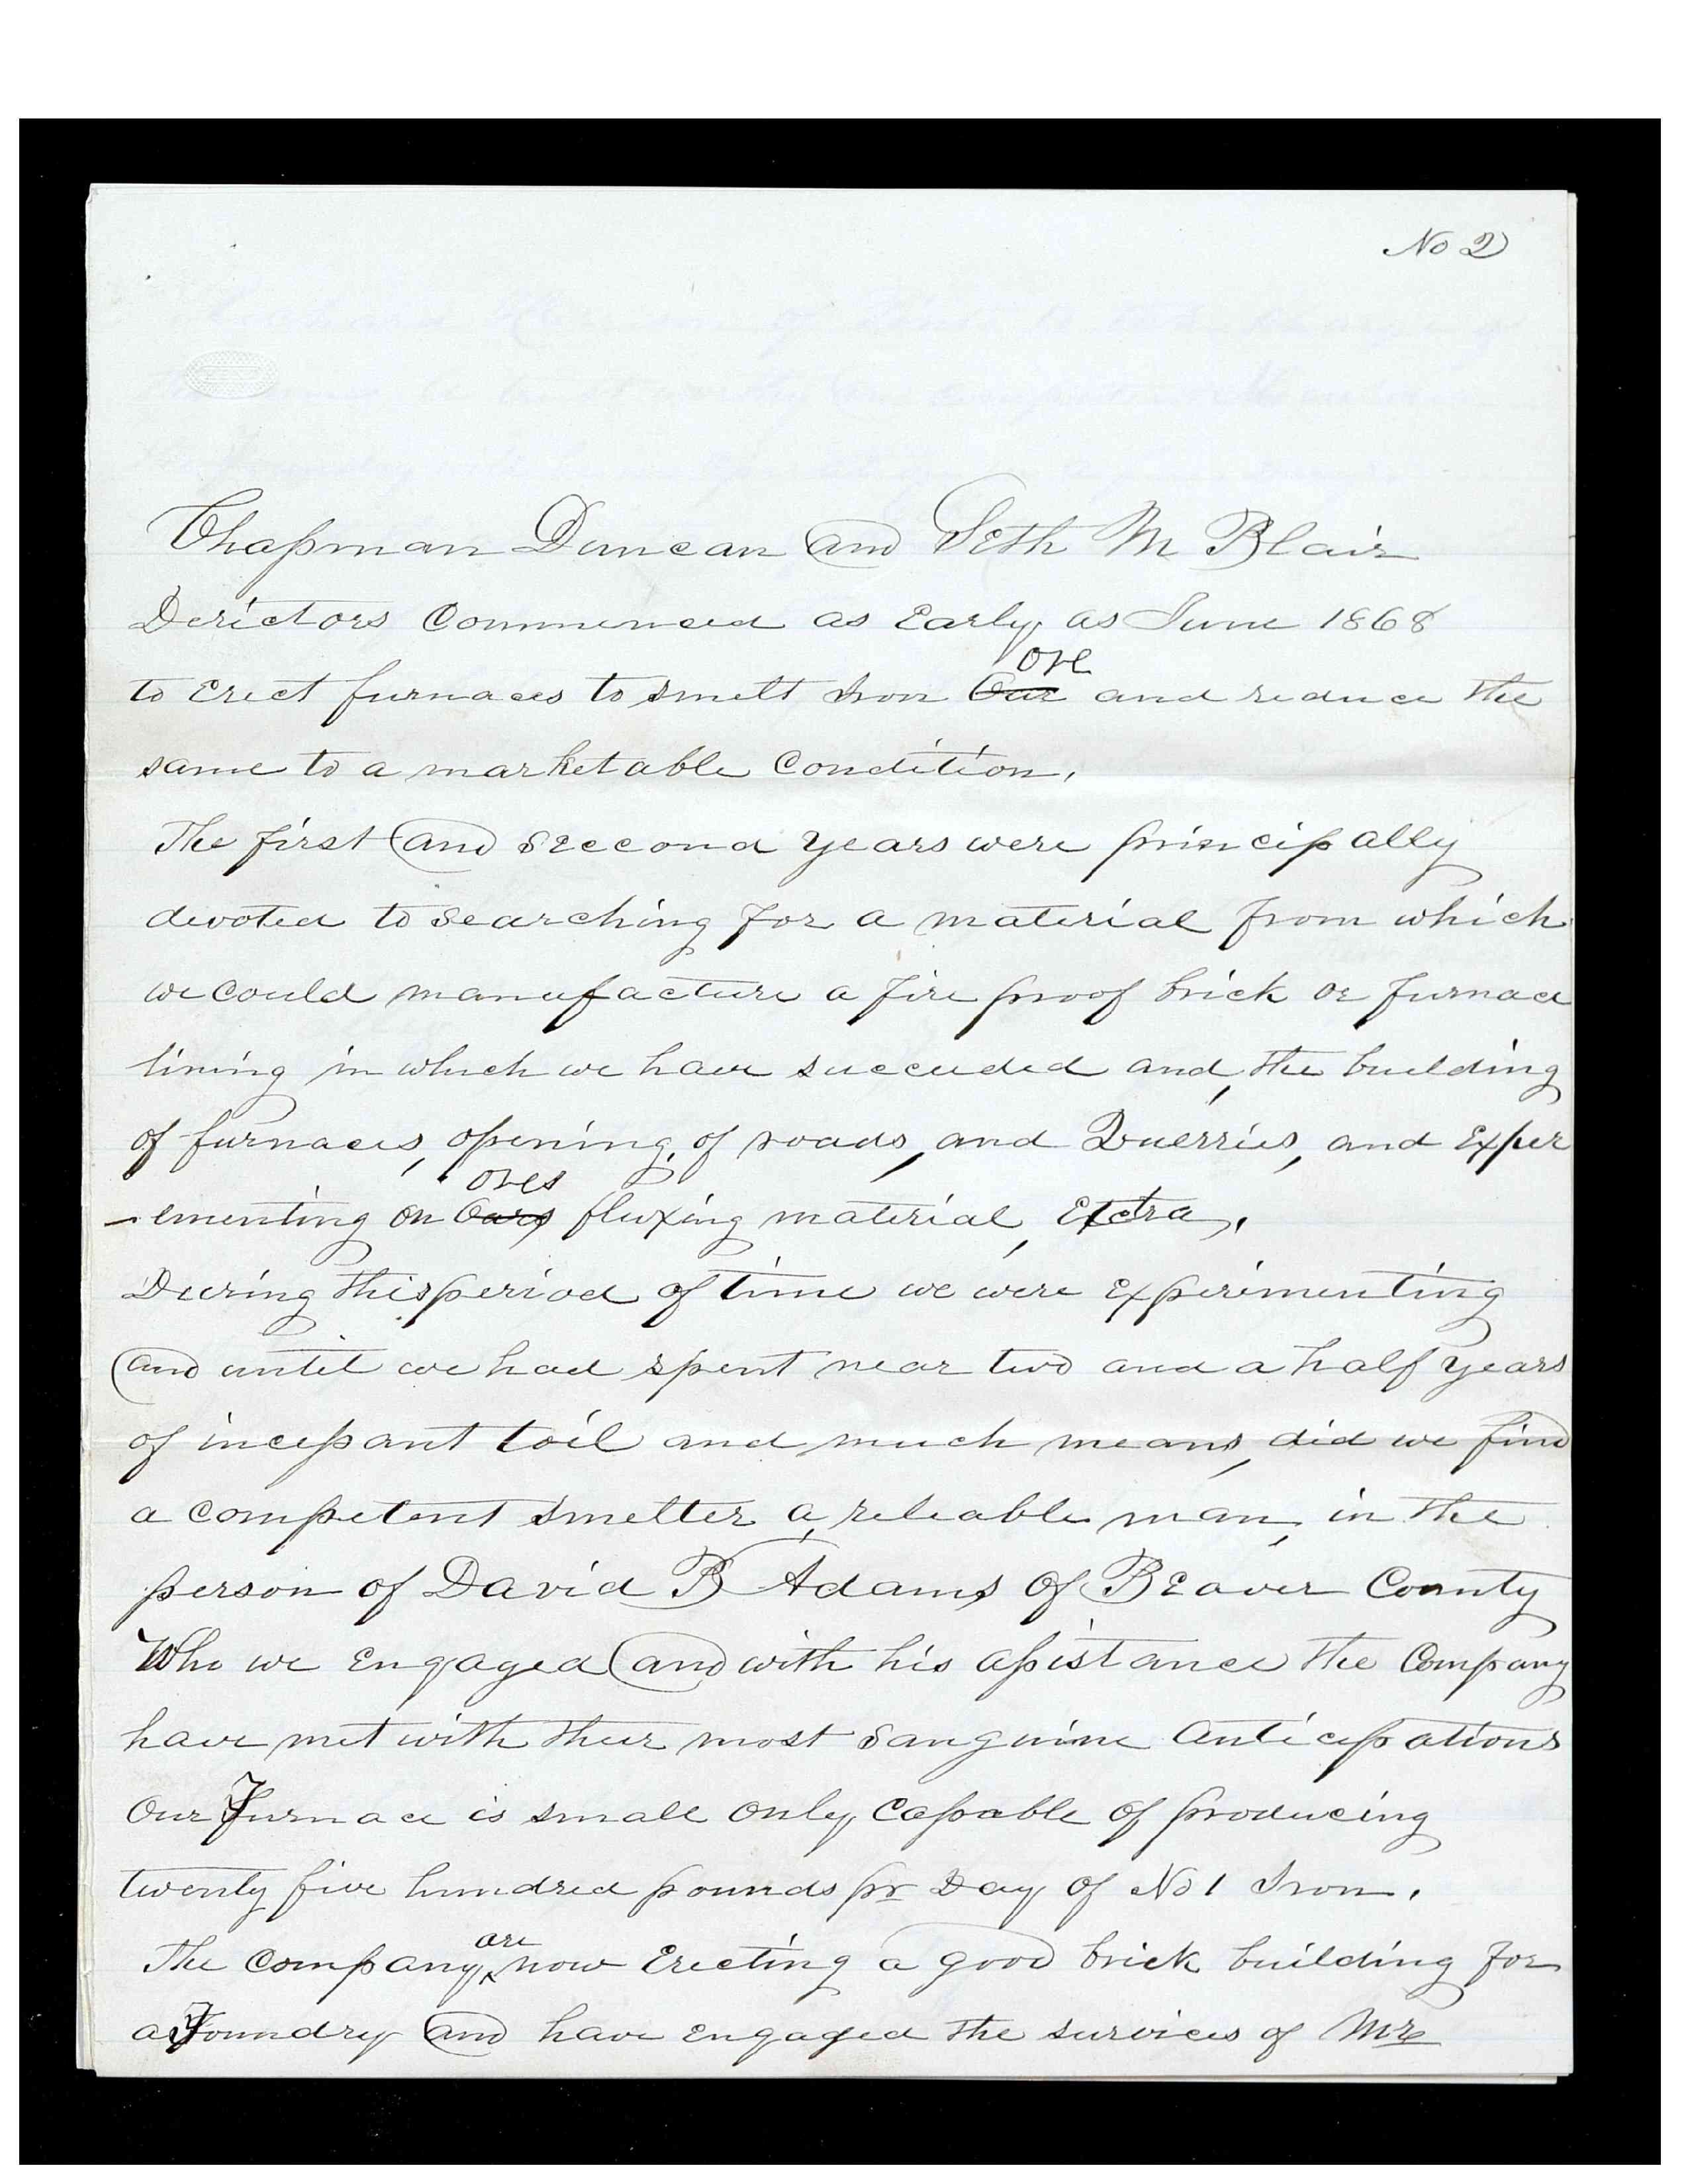 No 2
Chapman Duncan and Seth M Blair
Derictors Commenced as Early as June 1868
ore
to Erect furnaces to smelt Iron Oar and reduce the
same to a marketable Condition.
The first and seecond years were principally
devoted to searching for a material from which
we could manufacture a fire proof brick or furnace
lining in which we have succeeded and, the building
of furnaces, opening, of roads, and Querries, and Exper
ores
-ementing on Oars fluxing material, Etctra,.
During this period of time we were experimenting
and until we had spent near two and a half years
of incessant toil and much means, did we find
a competent smelter a, reliable man, in the
person of David B Adams of Beaver County
Who we engaged and with his assistance the Company
have met with their most sanguine anticipations
Our Furnace is small only capable of producing
twenty five hundred pounds pr Day of No 1 Iron.
are
The company ^ now Erecting a good brick building for
a Foundry and have engaged the services of Mr